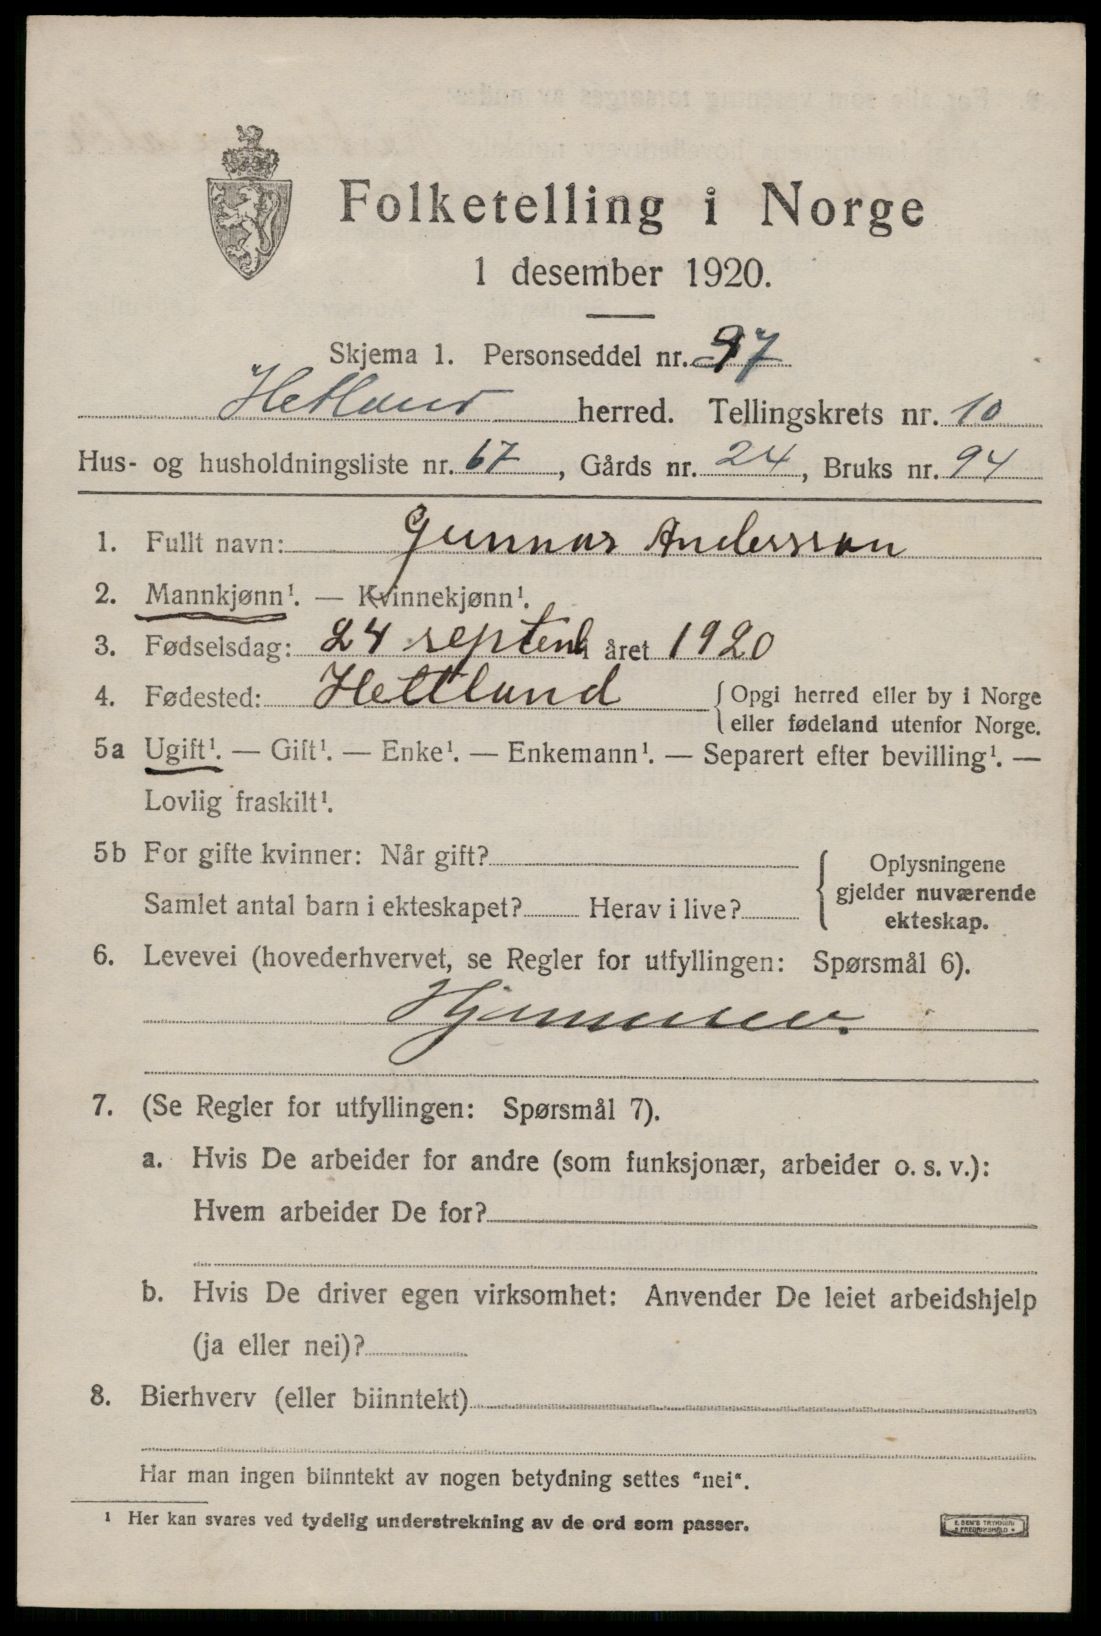 Folketelling i Norge
1 desember 1920.
Skjema 1. Personseddel nr. 97
Hetland herred. Tellingskrets nr. 10
Hus- og husholdningsliste nr. 67, Gårds nr. 24, Bruks nr. 94
1. Fullt navn: Gunnar Anderssen
2. Mannkjønn¹. — Kvinnekjønn¹.
3. Fødselsdag: 24 septemb året 1920
4. Fødested: Hettland { Opgi herred eller by i Norge
eller fødeland utenfor Norge.
5a Ugift¹. — Gift¹. — Enke¹. — Enkemann¹. — Separert efter bevilling¹. —
Lovlig fraskilt¹.
5b For gifte kvinner: Når gift? { Oplysningene
gjelder nuværende
Samlet antal barn i ekteskapet? Herav i live? ekteskap.
6. Levevei (hovederhvervet, se Regler for utfyllingen: Spørsmål 6).
Hjemmeev.
7. (Se Regler for utfyllingen: Spørsmål 7).
a. Hvis De arbeider for andre (som funksjonær, arbeider o. s. v.):
Hvem arbeider De for?
b. Hvis De driver egen virksomhet: Anvender De leiet arbeidshjelp
(ja eller nei)?
8. Bierhverv (eller biinntekt)
Har man ingen biinntekt av nogen betydning settes "nei".
¹ Her kan svares ved tydelig understrekning av de ord som passer.